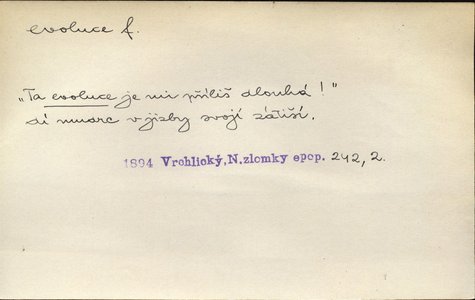 evoluce f.
„Ta evoluce je mi příliš dlouhá!"
dí mudrc v jizby svojí zátiší.
1894 Vrchlický, N. zlomky epop. 242, 2.